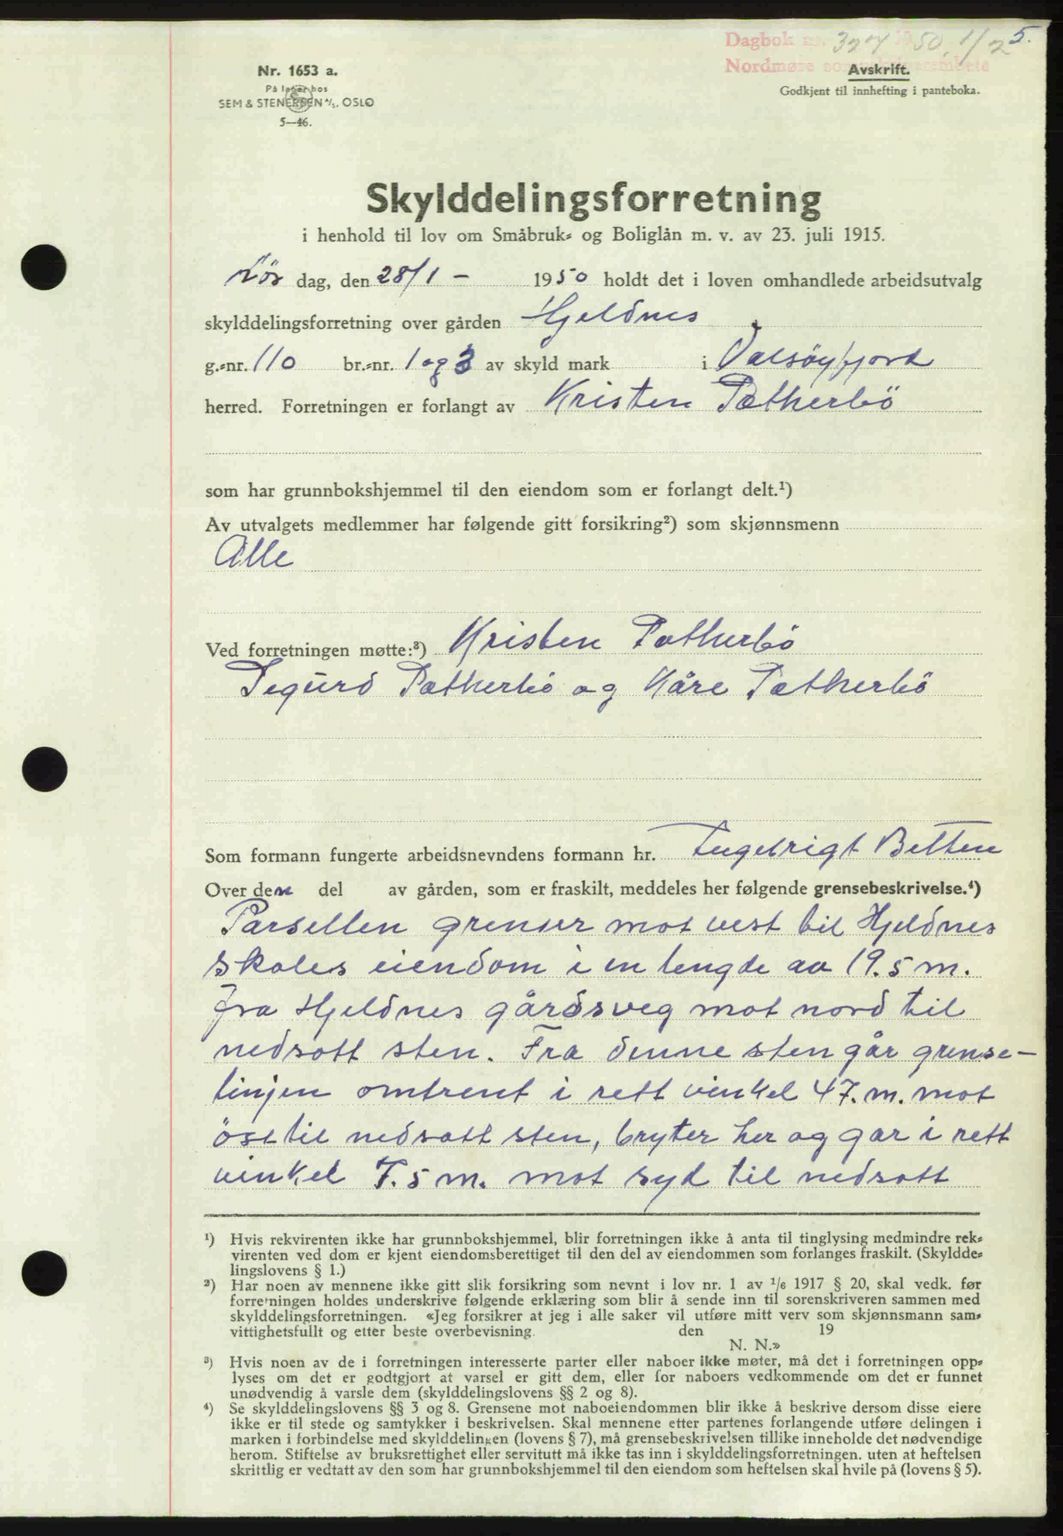 Dagbok nr. 327 1950, 1/2 5.
Nordmøre sorenskriverembete
Nr. 1653 a.
På lager hos
SEM & STENERSEN A/S, OSLO
5—46.
Avskrift.
Godkjent til innhefting i panteboka.
Skylddelingsforretning
i henhold til lov om Småbruk- og Boliglån m. v. av 23. juli 1915.
Lør dag, den 28/1 - 1950 holdt det i loven omhandlede arbeidsutvalg
skylddelingsforretning over gården Hjeldnes
g.-nr. 110 br.-nr. 1 og 3 av skyld mark i Valsøyfjord
herred. Forretningen er forlangt av Kristen Fætherbö
som har grunnbokshjemmel til den eiendom som er forlangt delt.¹)
Av utvalgets medlemmer har følgende gitt forsikring²) som skjønnsmenn
Alle
Ved forretningen møtte:³) Kristen Fætherbö
Sigurd Fætherbö og Kåre Fætherbö
Som formann fungerte arbeidsnevndens formann hr. Ingebrigt Betten
Over den del av gården, som er fraskilt, meddeles her følgende grensebeskrivelse.⁴)
Parsellen grenser mot vest til Hjeldnes
skoles eiendom i en lengde av 19.5 m.
fra Hjeldnes gårdsveg mot nord til
nedsatt sten. Fra denne sten går grense-
linjen omtrent i rett vinkel 47. m. mot
öst til nedsatt sten, bryter her og gar i rett
vinkel 7.5 m. mot syd til nedsatt
¹) Hvis rekvirenten ikke har grunnbokshjemmel, blir forretningen ikke å anta til tinglysing medmindre rek-
virenten ved dom er kjent eiendomsberettiget til den del av eiendommen som forlanges fraskilt. (Skyldde-
lingslovens § 1.)
²) Har noen av mennene ikke gitt slik forsikring som nevnt i lov nr. 1 av 1/6 1917 § 20, skal vedk. før
forretningen holdes underskrive følgende erklæring som blir å sende inn til sorenskriveren sammen med
skylddelingsforretningen. «Jeg forsikrer at jeg i alle saker vil utføre mitt verv som skjønnsmann sam-
vittighetsfullt og etter beste overbevisning. den 19
N. N.»
³) Hvis noen av de i forretningen interesserte parter eller naboer ikke møter, må det i forretningen opp-
lyses om det er godtgjort at varsel er gitt dem, eller for naboers vedkommende om det er funnet
unødvendig å varsle dem (skylddelingslovens §§ 2 og 8).
⁴) Se skylddelingslovens §§ 3 og 8. Grensene mot naboeiendommen blir ikke å beskrive dersom disse eiere
ikke er til stede og samtykker i beskrivelsen. Skal mennene etter partenes forlangende utføre delingen i
marken i forbindelse med skylddelingen (lovens § 7), må grensebeskrivelsen tillike inneholde det nødvendige
herom. Stiftelse av bruksrettighet eller servitutt må ikke tas inn i skylddelingsforretningen. uten at heftelsen
skriftlig er vedtatt av den som har grunnbokshjemmel til den eiendom som heftelsen skal hvile på (lovens § 5).